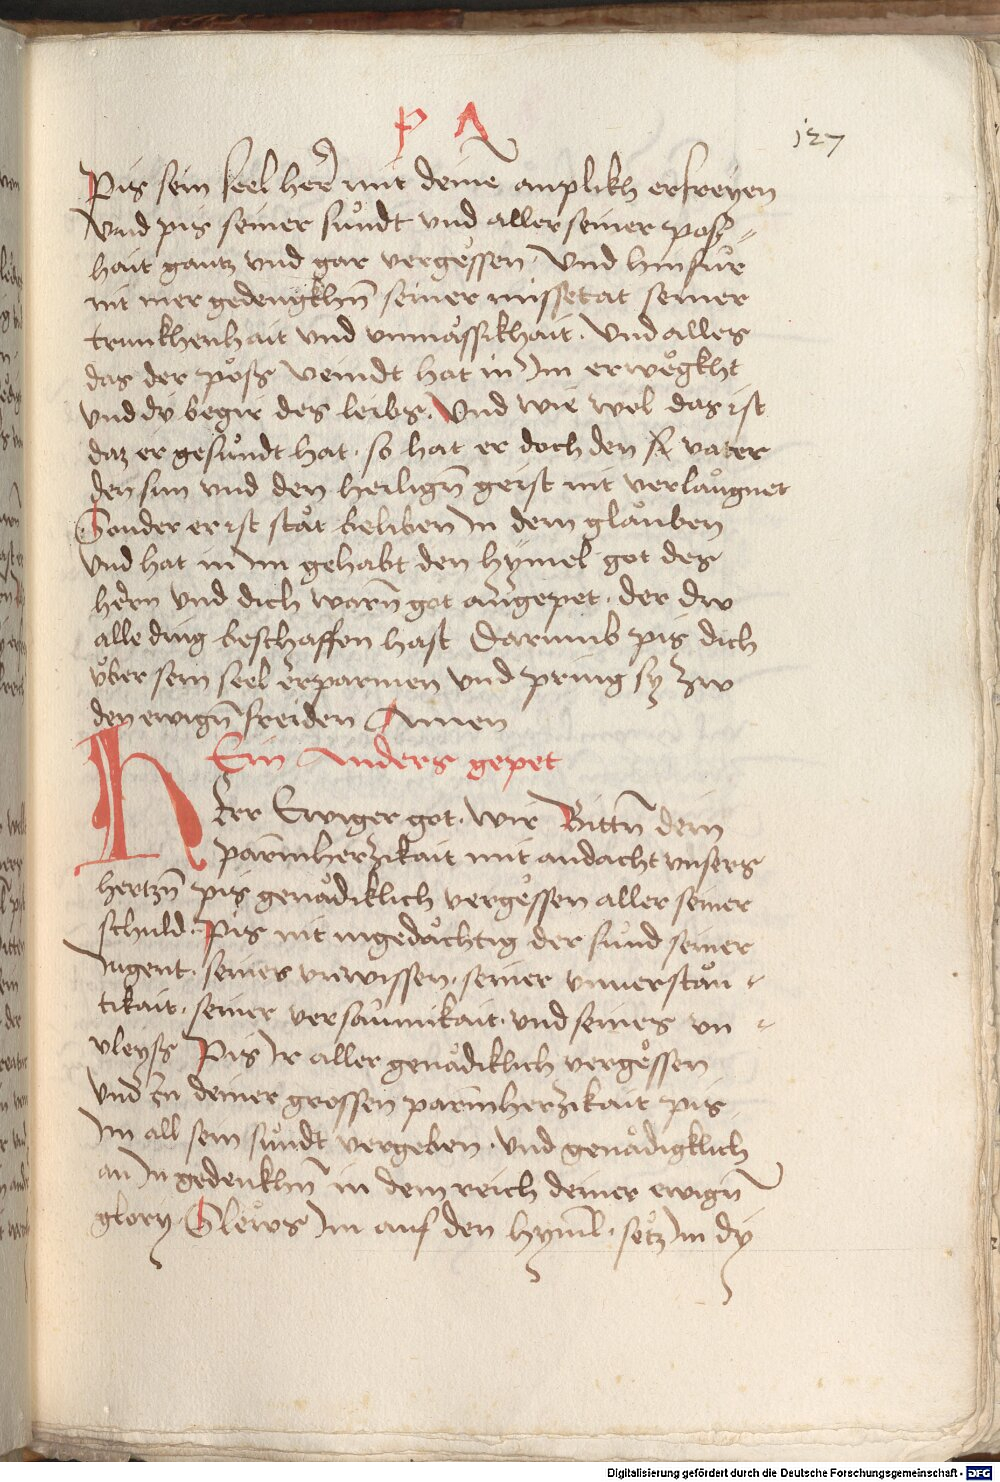 P A
127
Pis sein seel herr mit deine anplikh erfreyen
Vnd pis seiner sůndt vnd aller seiner poß-
hait gantz vnd gar vergessen. Vnd hinfur
nit mer gedengkhn̄ seiner missetat seiner
trunkhenhait vnd vnmåssikhait. Vnd alles
das der pöß veindt hat in Im erwögkht
vnd dÿ begir des leibs. Vnd wie wol das ist
daz er gesůndt hat. so hat er doch den vater
den sun vnd den heilign̄ geist nit verlaugnet
Sonder er ist ståt beliben In dem glauben
vnd hat in Im gehabt den hÿmel got des
hern vnd dich warn̄ got angepet. der dw
alle ding beschaffen hast Darumb pis dich
vber sein seel erparmen vnd pring sy zw
den ewign̄ freiden Amen
Ein Anders gepet
Herr Ewiger got. wir Bittn̄ dein
parmherzikait mit andacht vnsers
hertzn̄ pis genådiklich vergessen aller seiner
schuld. Pis nit ingedåchtig der sůnd seiner
Iugent. seines vnwissen. seiner vnuerstån-
tikait. seiner versaumikait. vnd seines vn-
vleyß Pis Ir aller genådiklich vergessen
vnd In deiner grossen parmherzikait pis
Im all sein sůndt vergeben. vnd genådigklich
an In gedenkhn̄ in dem reich deiner ewign̄
glory. Slews Im auf den hÿml. setz In dÿ
Digitalisierung gefördert durch die Deutsche Forschungsgemeinschaft - DFG